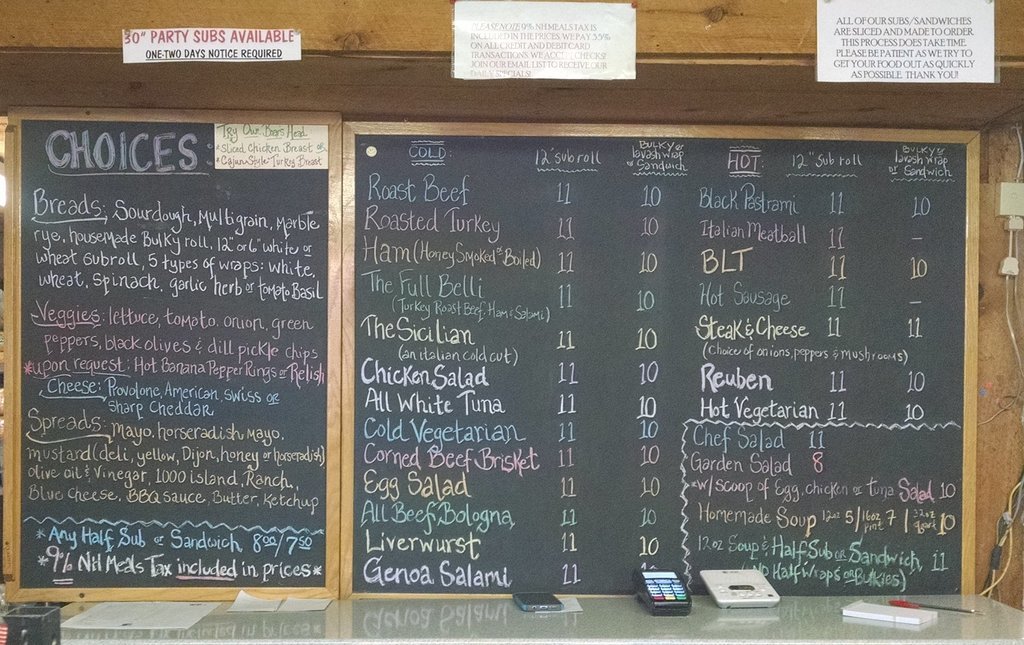 30" PARTY SUBS AVAILABLE
ONE-TWO DAYS NOTICE REQUIRED
PLEASE NOTE 9% NH MEALS TAX IS
INCLUDED IN THE PRICES. WE PAY 3.5%
ON ALL CREDIT AND DEBIT CARD
TRANSACTIONS. WE ACCEPT CHECKS!
JOIN OUR EMAIL LIST TO RECEIVE OUR
DAILY SPECIALS!
ALL OF OUR SUBS/SANDWICHES
ARE SLICED AND MADE TO ORDER.
THIS PROCESS DOES TAKE TIME.
PLEASE BE PATIENT AS WE TRY TO
GET YOUR FOOD OUT AS QUICKLY
AS POSSIBLE. THANK YOU!
CHOICES:
Try Our Boars Head
*Sliced Chicken Breast or
*Cajun Style Turkey Breast
Breads: Sourdough, Multigrain, Marble
rye, housemade Bulky roll, 12" or 6" white or
wheat subroll, 5 types of wraps: white,
wheat, spinach, garlic herb or tomato Basil
Veggies: lettuce, tomato, onion, green
peppers, black olives & dill pickle chips
*upon request: Hot Banana Pepper Rings or Relish
Cheese: Provolone, American, Swiss or
Sharp Cheddar
Spreads: Mayo, horseradish mayo,
mustard (deli, yellow, Dijon, honey or horseradish)
olive oil & Vinegar, 1000 island, Ranch,
Blue Cheese, BBQ sauce, Butter, Ketchup
*Any Half Sub or Sandwich 8.00/7.50
*9% NH Meals Tax included in prices*
COLD: 12" sub roll BULKY or lavash wrap or Sandwich
Roast Beef 11 10
Roasted Turkey 11 10
Ham (Honey Smoked or Boiled) 11 10
The Full Belli 11 10
(Turkey Roast Beef, Ham & Salami)
The Sicilian 11 10
(an italian cold cut)
Chicken Salad 11 10
All White Tuna 11 10
Cold Vegetarian 11 10
Corned Beef Brisket 11 10
Egg Salad 11 10
All Beef Bologna 11 10
Liverwurst 11 10
Genoa Salami 11
HOT: 12" sub roll BULKY or lavash wrap or Sandwich
Black Pastrami 11 10
Italian Meatball 11 –
BLT 11 10
Hot Sausage 11 –
Steak & Cheese 11 11
(choice of onions, peppers & mushrooms)
Reuben 11 10
Hot Vegetarian 11 10
Chef Salad 11
Garden Salad 8
*w/ scoop of Egg, chicken or Tuna Salad 10
Homemade Soup 12oz 5 / 16oz pint 7 / 32oz quart 10
12oz Soup & Half Sub or Sandwich 11
(NO Half Wraps or Bulkies)